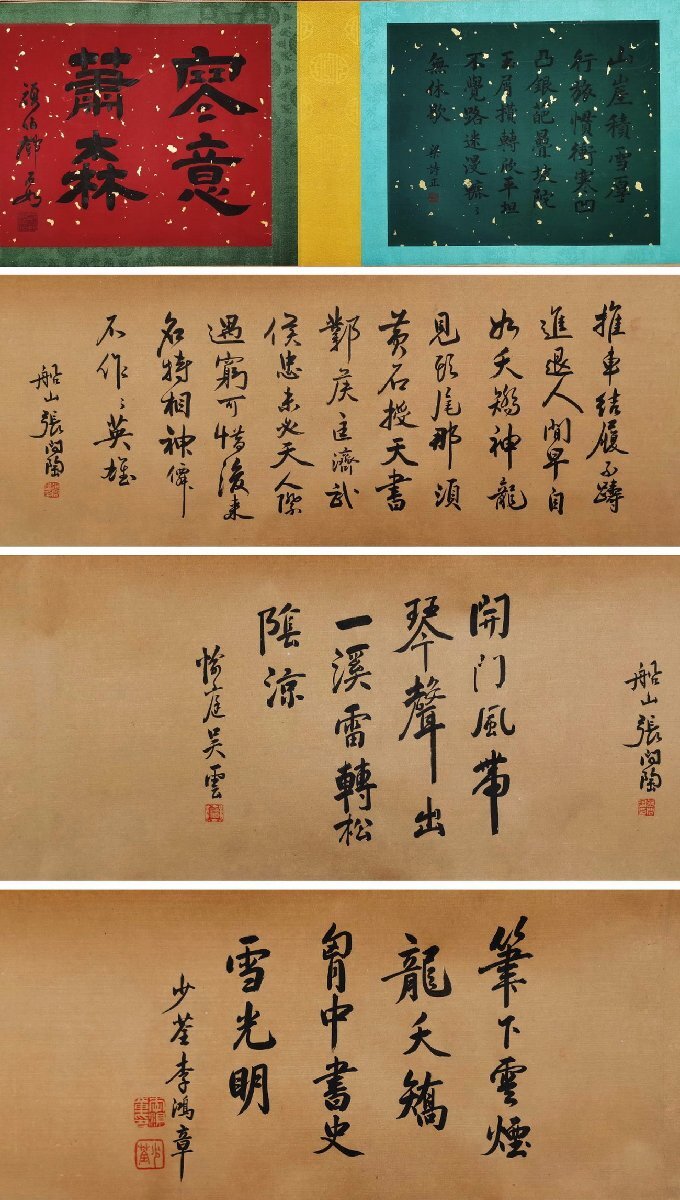 山崖積雪厚
行旅慣衝寒凹
凸銀葩疊坡陀
玉屑攢轉欣平坦
不覺路迷漫
無休歇
梁詩正
寒意
蕭森
頑伯鄧石如
推車結履
進退人間早自
如夭矯神龍
見頭尾那須
黃石授天書
鄴侯匡濟武
侯忠未必天人際
遇窮可惜後來
名特相神僊
不作〻英雄
船山張問陶
船山張問陶
開門風帶
琴聲出
一溪雷轉松
陰涼
愉庭吳雲
筆下雲煙
龍夭矯
胷中書史
雪光明
少荃李鴻章